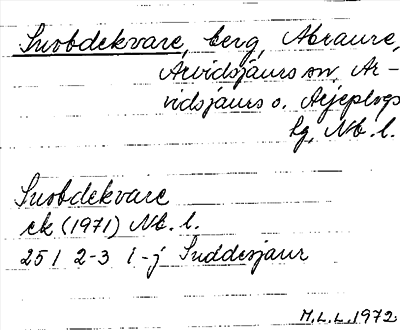 Suobdekvare, berg, Abraure,
Arvidsjaurs sn, Ar-
vidsjaurs o. Arjeplogs
lg, Nb. l.
Suobdekvare
ek (1971) Nb. l.
25 I 2-3 i-j Suddesjaur
M.L.L. 1972